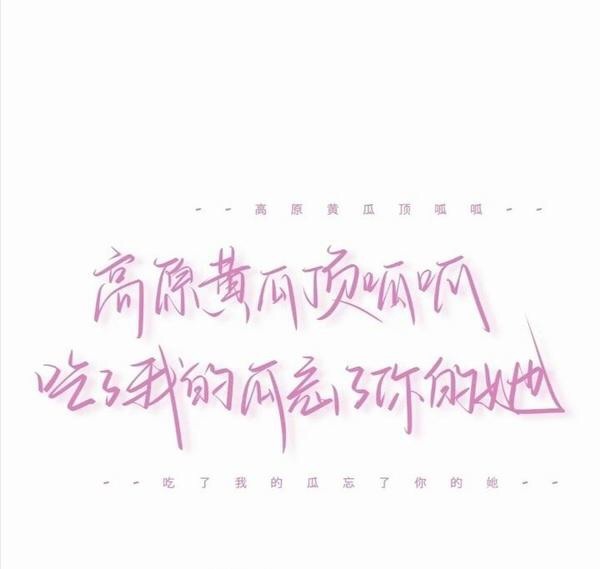 -- 高原黄瓜顶呱呱 --
高原黄瓜顶呱呱
吃了我的瓜忘了你的她
-- 吃了我的瓜忘了你的她 --